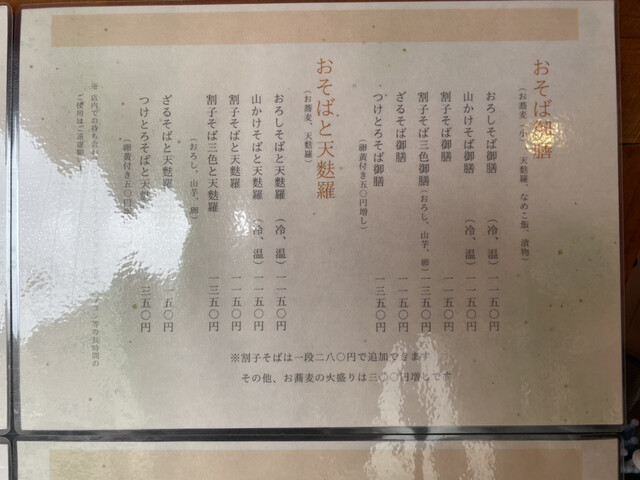 おそば御膳
(お蕎麦、小 天麩羅、なめこ飯、漬物)
おろしそば御膳 (冷、温) 一一五〇円
山かけそば御膳 (冷、温) 一一五〇円
割子そば御膳 一一五〇円
割子そば三色御膳(おろし、山芋、卵) 一三五〇円
ざるそば御膳 一一五〇円
つけとろそば御膳 一三五〇円
(卵黄付き五〇円増し)
おそばと天麩羅
(お蕎麦、天麩羅)
おろしそばと天麩羅 (冷、温) 一一五〇円
山かけそばと天麩羅 (冷、温) 一一五〇円
割子そばと天麩羅 一一五〇円
割子そば三色と天麩羅 一三五〇円
(おろし、山芋、卵)
ざるそばと天麩羅 一一五〇円
つけとろそばと天麩 一三五〇円
(卵黄付き五〇円増
※ 店内での待ち合わ 等の長時間の
ご使用はご遠慮願
※割子そばは一段二八〇円で追加できます
その他、お蕎麦の大盛りは三〇〇円増しです